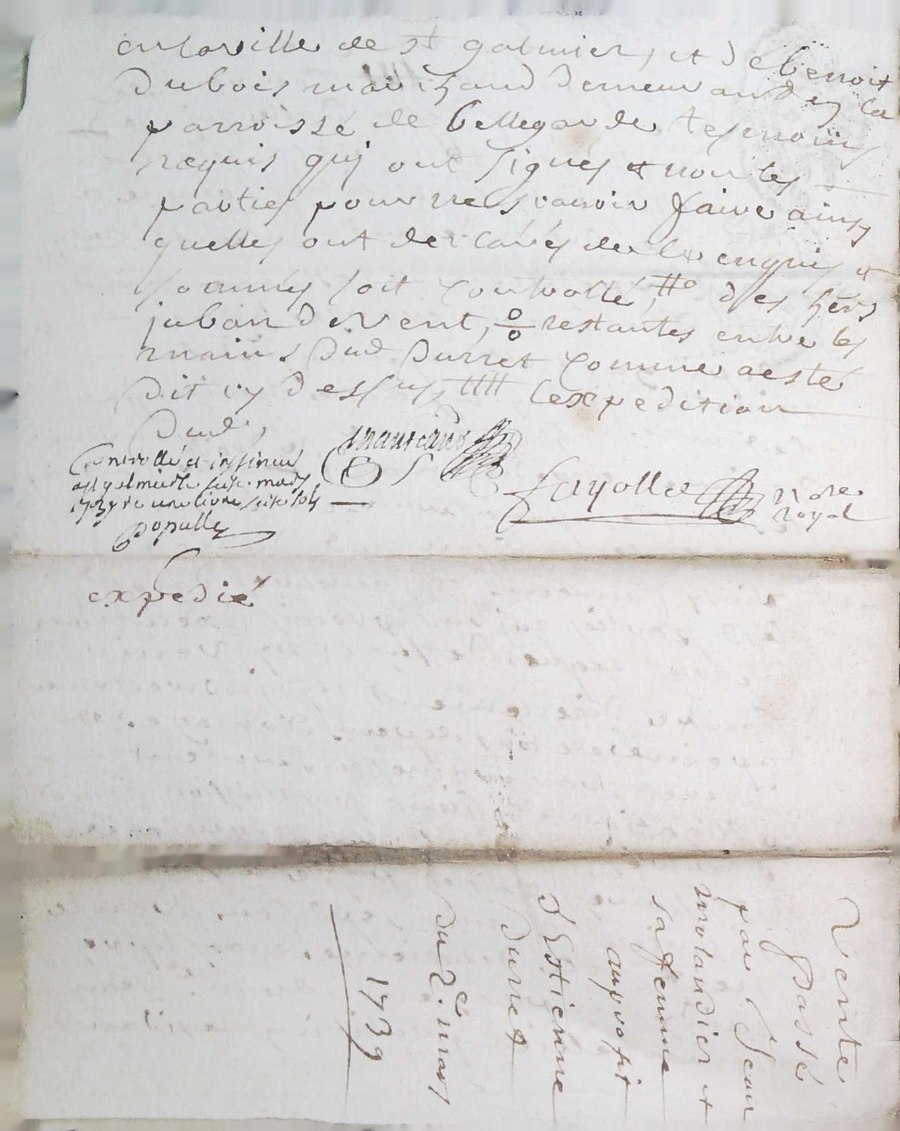 en la ville de st galmier, et de benoit
dubois marchand demeurant en la
parroisse de bellegarde tesmoins
requis qui ont signés et non les
parties pour ne scavoir faire ainsy
quelles ont declarés de ce enquis et
sommés soit controllé, des
restantes entre les
mains dud durret comme aesté
dit cy dessus, lexpedition
dud,
Controllé et insinué
a st galmier le mars
1739 une livre
populle
fayolle nore
royal
expedié
Vente
passé
par Jean
molardier et
sa femme
au profit
d'Estienne
durret
du 2e mars
1739